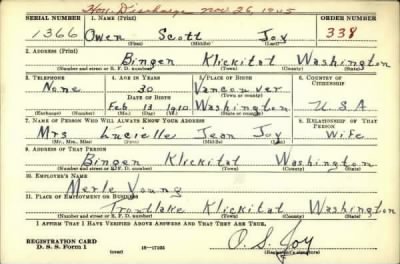 Hon. Discharge Nov 26, 1945
SERIAL NUMBER 1. NAME (Print) ORDER NUMBER
1366 Owen Scott Joy 338
(First) (Middle) (Last)
2. ADDRESS (Print)
Bingen Klickitat Washington
(Number and street or R. F. D. number) (Town) (County) (State)
3. TELEPHONE 4. AGE IN YEARS 5. PLACE OF BIRTH 6. COUNTRY OF CITIZENSHIP
None 30 Vancouver
DATE OF BIRTH (Town or county)
Feb 13 1910 Washington U.S.A
(Exchange) (Number) (Mo.) (Day) (Yr.) (State or country)
7. NAME OF PERSON WHO WILL ALWAYS KNOW YOUR ADDRESS 8. RELATIONSHIP OF THAT PERSON
Mrs Lucielle Jean Joy Wife
(Mr., Mrs., Miss) (First) (Middle) (Last)
9. ADDRESS OF THAT PERSON
Bingen Klickitat Washington
(Number and street or R. F. D. number) (Town) (County) (State)
10. EMPLOYER'S NAME
Merle Young
11. PLACE OF EMPLOYMENT OR BUSINESS
Troutlake Klickitat Washington
(Number and street or R. F. D. number) (Town) (County) (State)
I AFFIRM THAT I HAVE VERIFIED ABOVE ANSWERS AND THAT THEY ARE TRUE.
REGISTRATION CARD
D. S. S. Form 1 16—17105 O. S. Joy
(over) (Registrant's signature)